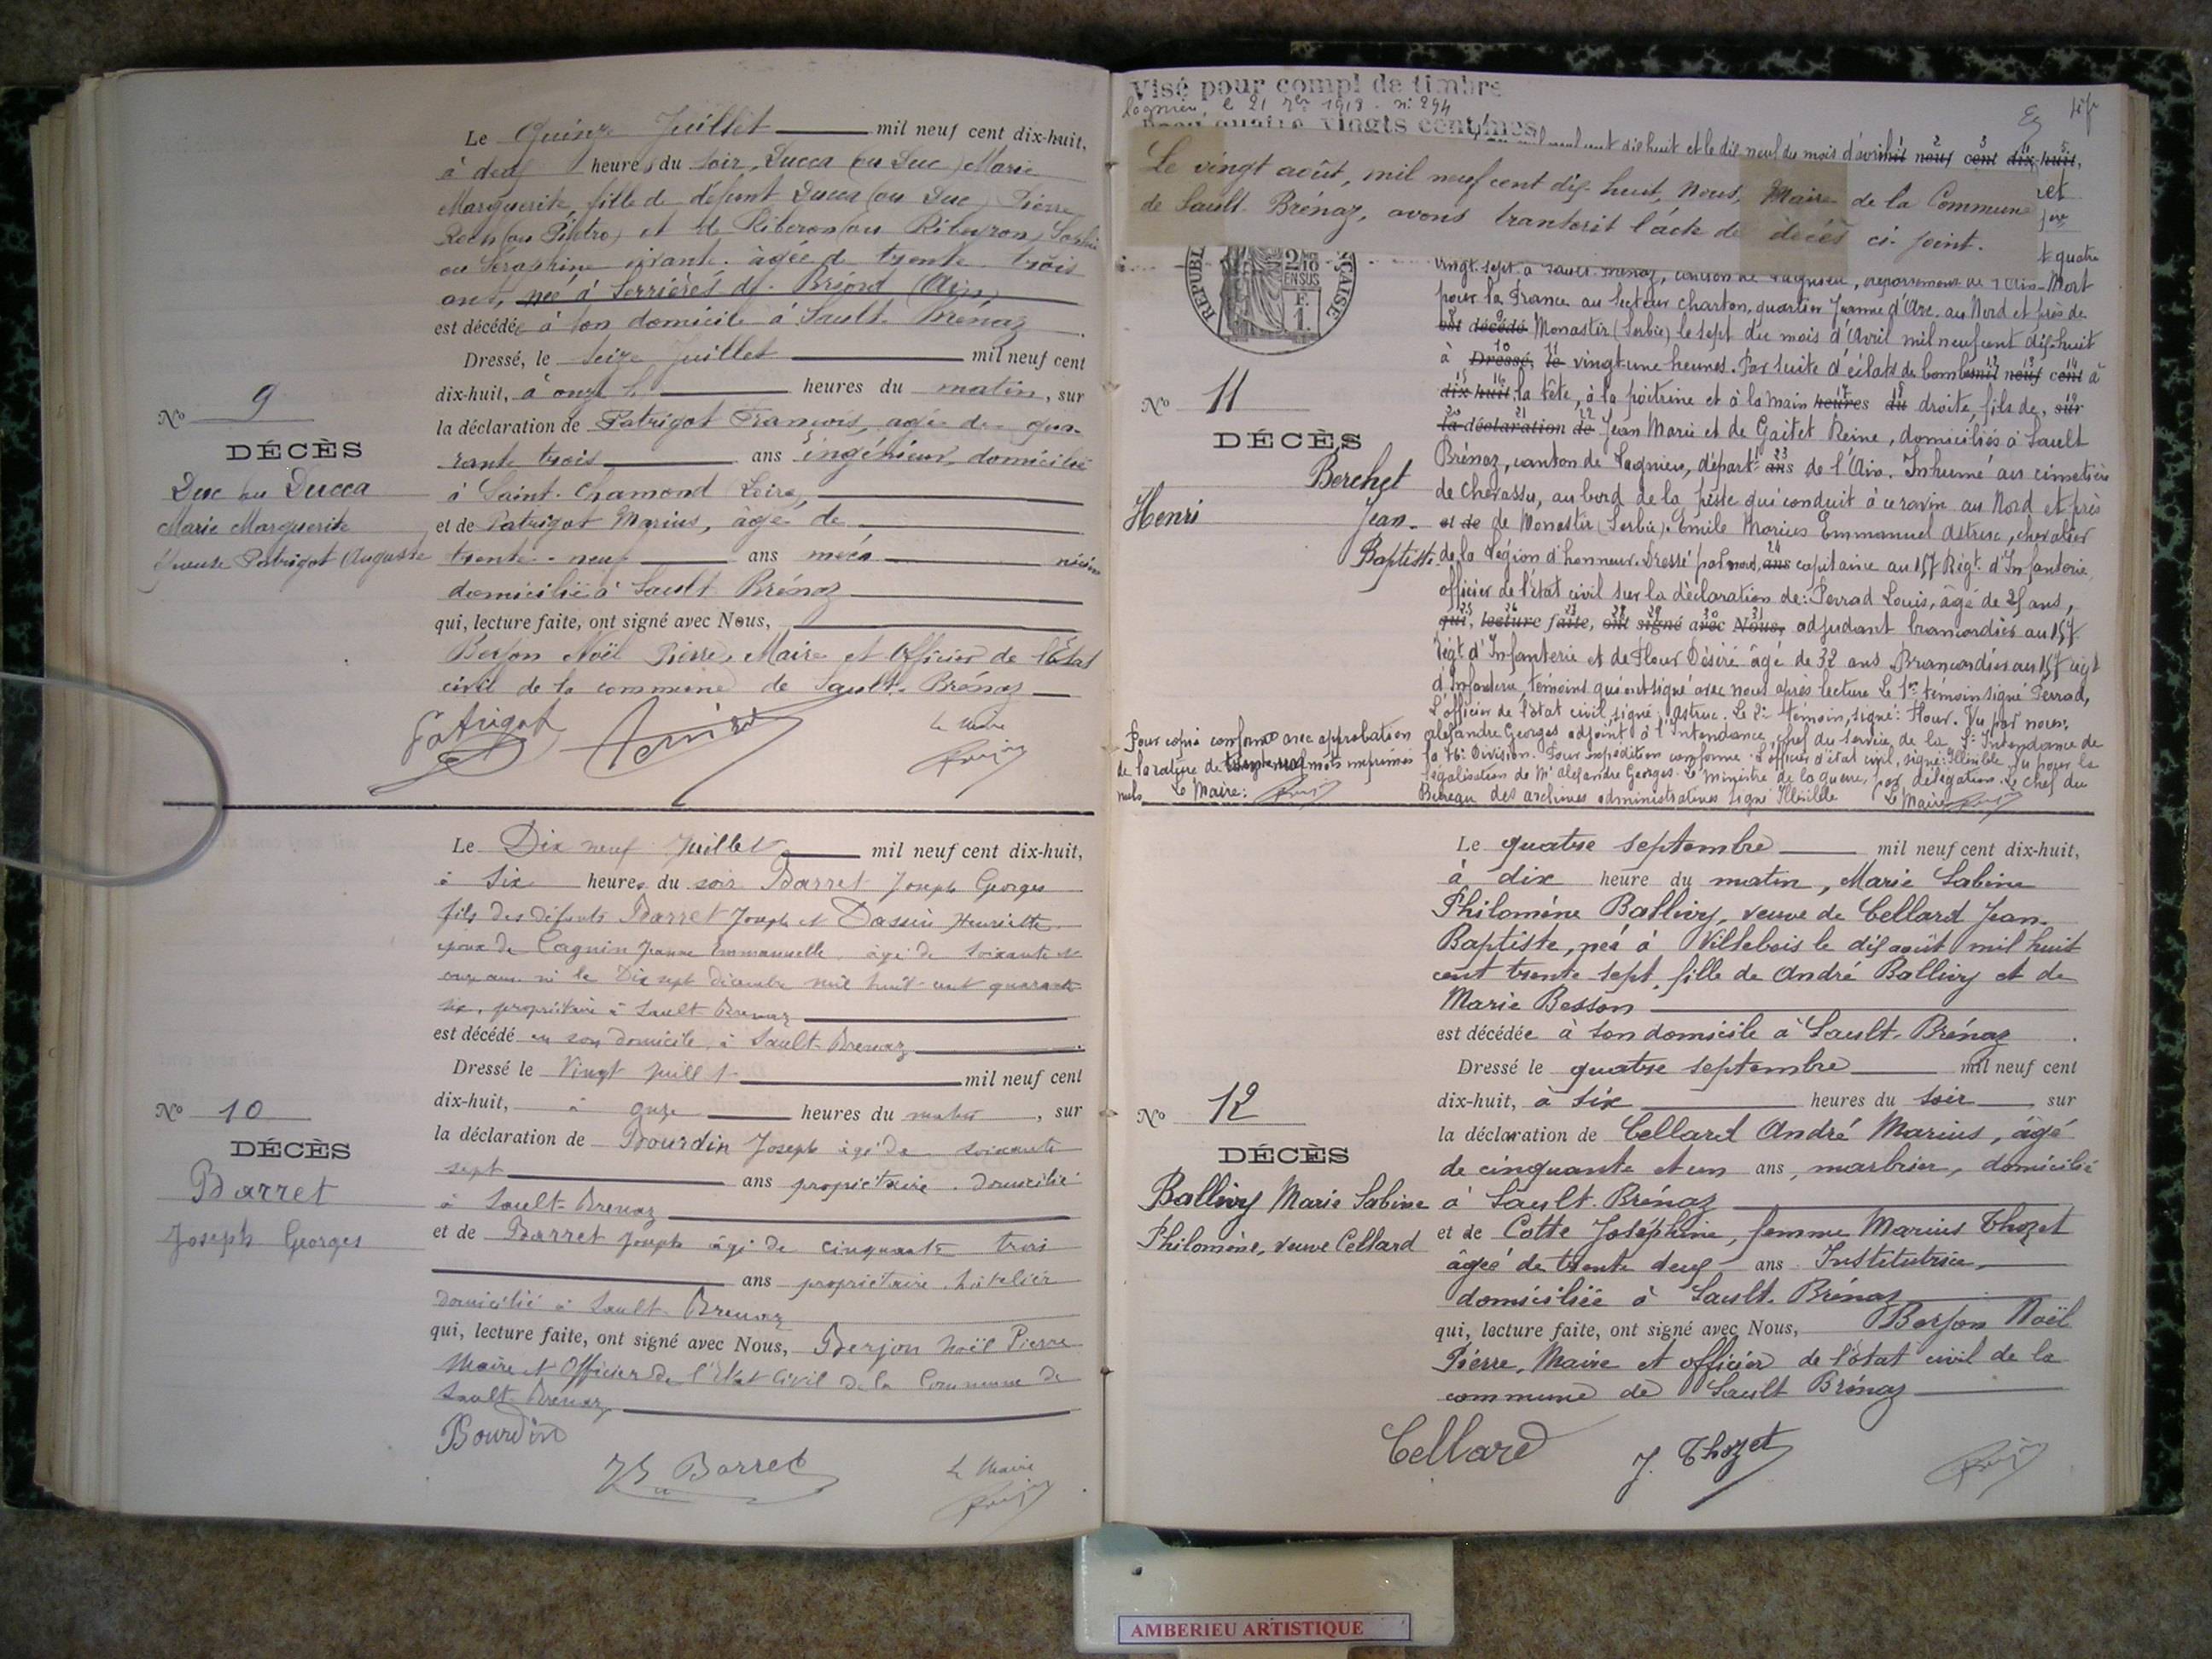 Le Quinze Juillet mil neuf cent dix-huit,
à deux heures du soir, Ducca (ou Duc) Marie
Marguerite, fille de défunt Ducca (ou Duc) Pierre
(ou Piétro) et de Riberon (ou Ribeyron)
ou Séraphine vivante. âgée de trente trois
ans, née à Serrières de Briord (Ain)
est décédée à son domicile à Sault-Brénaz.
Dressé, le seize Juillet mil neuf cent
dix-huit, à onze h. heures du matin, sur
No 9
la déclaration de Patrigot François, âgé de qua-
DÉCÈS
rante trois ans ingénieur, domicilié
Duc ou Ducca
à Saint-Chamond (Loire),
Marie Marguerite
et de Patrigot Marius, âgé de
Patrigot Auguste
trente-neuf ans
domicilié à Sault Brénaz
qui, lecture faite, ont signé avec Nous,
Berjon Noël Pierre, Maire et Officier de l'État
civil de la commune de Sault-Brénaz
Patrigot
Le Maire
Le Dix neuf Juillet mil neuf cent dix-huit,
à six heures du soir Barret Joseph Georges
fils des défunts Barret Joseph et Dassin Henriette
époux de Cagnin Jeanne Emmanuelle, âgé de soixante et
onze ans né le Dix sept décembre mil huit cent quarante
six, propriétaire à Sault Brenaz
est décédé en son domicile à Sault-Brenaz.
Dressé le Vingt Juillet mil neuf cent
dix-huit, à onze heures du matin, sur
No 10
la déclaration de Bourdin Joseph âgé de soixante
DÉCÈS
sept ans propriétaire. Domicilié
Barret
à Sault-Brenaz
Joseph Georges
et de Barret Joseph âgé de cinquante trois
ans propriétaire hôtelier
Domicilié à Sault-Brenaz
qui, lecture faite, ont signé avec Nous, Berjon Noël Pierre
Maire et Officier de l'Etat Civil de la Commune de
Sault-Brénaz
Bourdin
Barret
Le Maire
Visé pour compl de timbre
Lagnieu le 21 7bre 1918 - n° 294
quatre vingts centimes
dix huit et le dix neuf du mois d'avril mil neuf cent dix-huit,
Le vingt août, mil neuf cent dix-huit, Nous, Maire de la Commune
de Sault-Brénaz, avons transcrit l'acte de décès ci-joint.
et
t quatre
vingt-sept à Sault-Brénaz, canton de Lagnieu, département de l'Ain. Mort
RÉPUBL ÇAISE
2/10 EN SUS
F. 1.
pour la France au secteur Charton, quartier Jeanne d'Arc. au Nord et près de
est décédé Monastir (Serbie) le sept du mois d'Avril mil neuf cent dix-huit
à Dressé, le vingt-une heures. Par suite d'éclats de bombe mil neuf cent à
No 11
dix-huit, la tête, à la poitrine et à la main heures du droite, fils de, sur
DÉCÈS
la déclaration de Jean Marie et de Gaitet Reine, domiciliés à Sault
Berchet
Brénaz, canton de Lagnieu, départ.t ans de l'Ain. Inhumé au cimetière
Henri Jean-
Baptiste
de Chevassu, au bord de la piste qui conduit à ce ravin au Nord et près
et de de Monastir (Serbie). Emile Marius Emmanuel Astruc, chevalier
de la Légion d'honneur. Dressé par nous, ans capitaine au 157 Régt. d'Infanterie
officier de l'état civil sur la déclaration de: Perrad Louis, âgé de 25 ans,
qui, lecture faite, ont signé avec Nous, adjudant brancardier au 157
régt d'Infanterie et de Flour Désiré âgé de 32 ans Brancardier au 157 régt
d'Infanterie, témoins qui ont signé avec nous après lecture Le 1er témoin signé Perrad,
L'officier de l'état civil, signé: Astruc. Le 2e témoin, signé: Flour. Vu par nous,
Alexandre Georges adjoint à l'Intendance, chef du service de la S. Intendance de
la 76e Division. Pour expédition conforme. L'officier d'état civil, signé: Illisible. Vu pour la
légalisation de Mr Alexandre Georges. Le Ministre de la guerre, par délégation. Le chef du
Bureau des archives administratives signé Illisible Le Maire
Pour copie conforme avec approbation
de la rature de mots imprimés
nuls Le Maire:
Le quatre septembre mil neuf cent dix-huit,
à dix heure du matin, Marie Sabine
Philomène Ballivy, veuve de Cellard Jean-
Baptiste, née à Villebois le dix août mil huit
cent trente sept, fille de André Ballivy et de
Marie Besson
est décédée à son domicile à Sault-Brénaz.
Dressé le quatre septembre mil neuf cent
dix-huit, à six heures du soir sur
No 12
la déclaration de Cellard André Marius, âgé
DÉCÈS
de cinquante et un ans, marbrier, domicilié
Ballivy Marie Sabine
à Sault-Brénaz
Philomène, veuve Cellard
et de Cotte Joséphine, femme Marius Thozet
âgée de trente deux ans Institutrice,
domiciliée à Sault-Brénaz
qui, lecture faite, ont signé avec Nous, Berjon Noël
Pierre, Maire et officier de l'état civil de la
commune de Sault Brénaz
Cellard
J. Thozet
AMBERIEU ARTISTIQUE